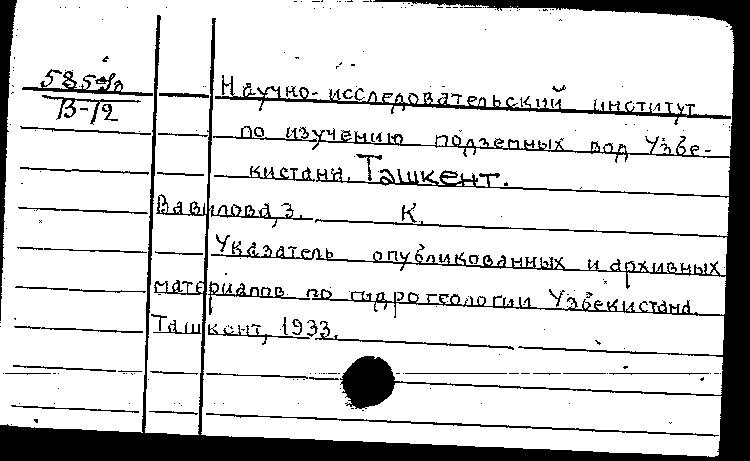 Научно-исследовательский институт
В-12
по изучению подземных вод Узбе-
кистана. Ташкент.
Вавилова, З. К.
Указатель опубликованных и архивных
материалов по гидрогеологии Узбекистана.
Ташкент, 1933.